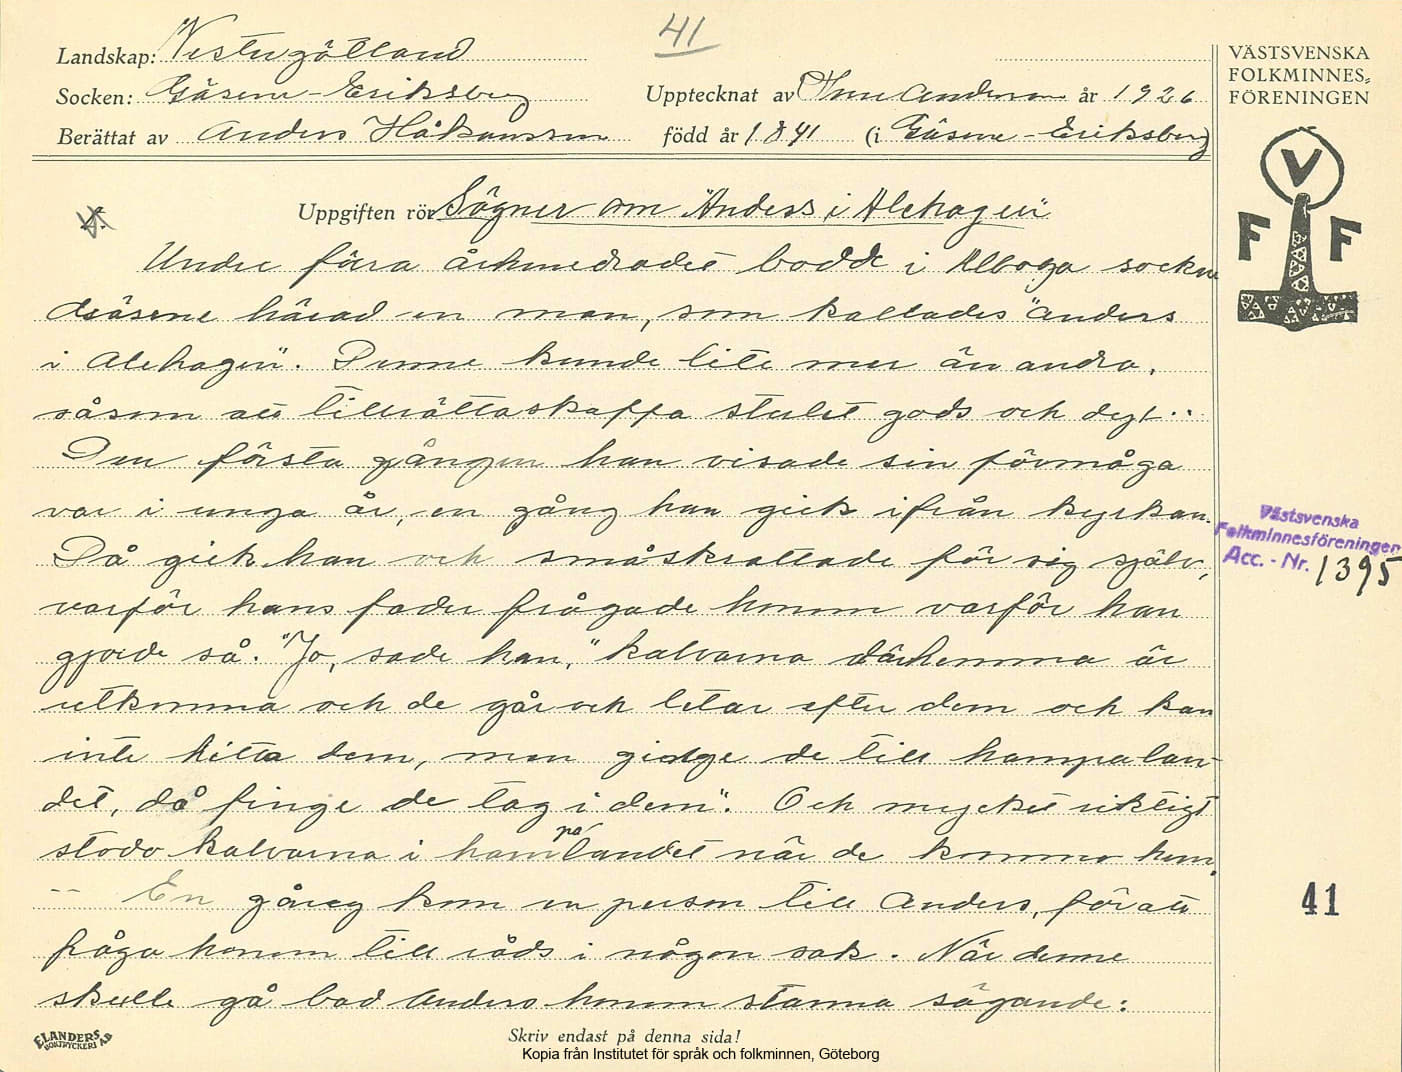 41
Landskap: Vestergötland
Socken: Gäsene-Eriksberg
Upptecknat av Sven Andersson år 1926
Berättat av Anders Håkansson född år 1841 (i Gäsene-Eriksberg
VÄSTSVENSKA
FOLKMINNES-
FÖRENINGEN
V
F F
Uppgiften rör Sägner om "Anders i Alehagen"
Under förra århundradet bodde i Alboga socken
Gäsene härad en man, som kallades "Anders
i Alehagen". Denne kunde lite mer än andra,
såsom att tillrättaskaffa stulet gods och dyl..
Den första gången han visade sin förmåga
var i unga år, en gång han gick ifrån kyrkan.
Då gick han och småskrattade för sig själv,
varför hans fader frågade honom varför han
gjorde så. "Jo, sade han," kalvarna därhemma är
utkomna och de går och letar efter dem och kan
inte hitta dem, men ginge de till hampalan-
det, då finge de tag i dem". Och mycket riktigt
stodo kalvarna i hampalandet när de kommo hem.
-- En gång kom en person till Anders, för att
fråga honom till råds i någon sak. När denne
skulle gå bad Anders honom stanna sägande:
Västsvenska
Folkminnesföreningen
Acc. - Nr. 1395
41
ELANDERS
BOKTRYCKERI A.B
Skriv endast på denna sida!
Kopia från Institutet för språk och folkminnen, Göteborg